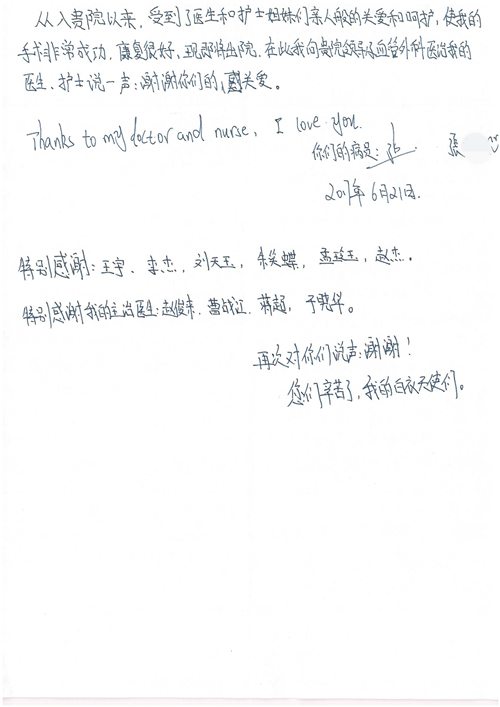 从入贵院以来,受到了医生和护士姐妹们亲人般的关爱和呵护,使我的
手术非常成功,康复很好,现即将出院,在此我向贵院领导及血管外科医治我的
医生、护士说一声:谢谢你们的关爱。
Thanks to my doctor and nurse, I love you.
你们的病员:张 張
2017年6月21日.
特别感谢:王宇、李杰,刘天玉,朱笑蝶,孟玲玉,赵杰。
特别感谢我的主治医生:赵俊来、曹战江、蒋超,于晓华。
再次对你们说声:谢谢!
您们辛苦了,我的白衣天使们。